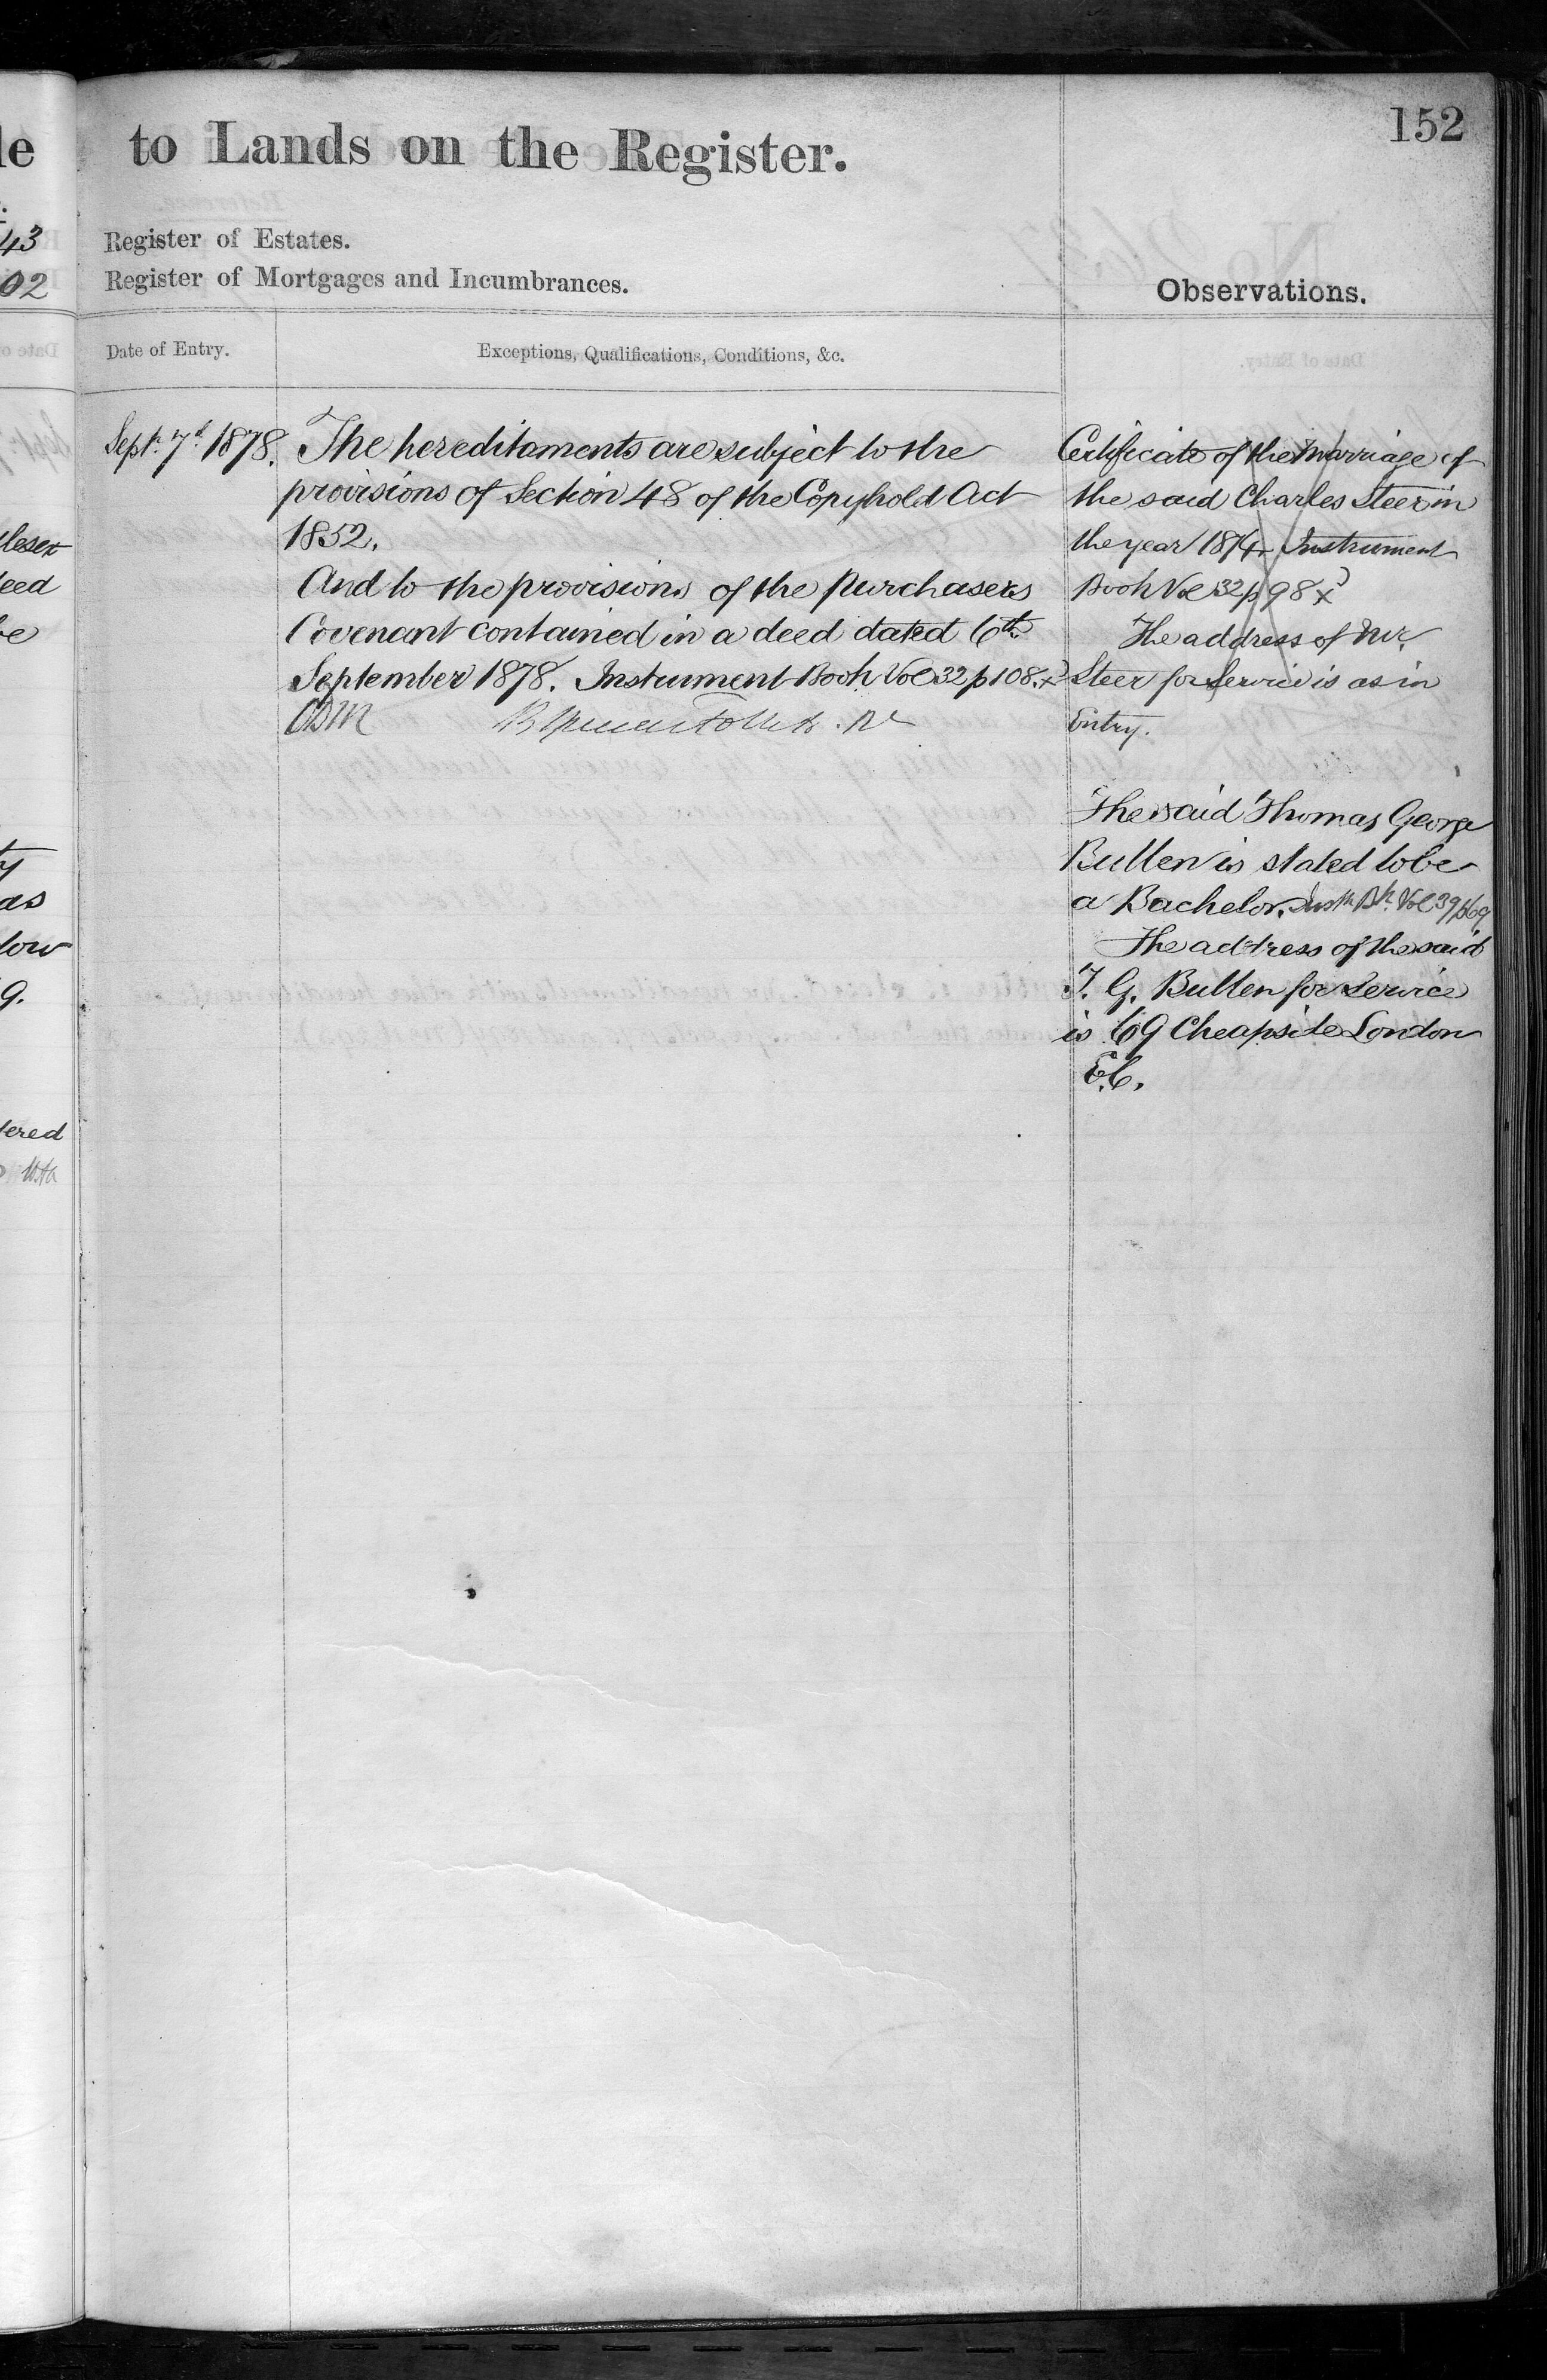 le
43
02
lesex
eed
be
ty
as
low
9.
tered
to Lands on the Register.
152
Register of Estates.
Register of Mortgages and Incumbrances.
Observations.
Date of Entry.
Exceptions, Qualifications, Conditions, &c.
Sept. 7th 1878.
The hereditaments are subject to the
provisions of Section 48 of the Copyhold Act
1852.
And to the provisions of the Purchasers
Covenant contained in a deed dated 6th
September 1878. Instrument Book Vol 32 p 108. x
Certificate of the Marriage of
the said Charles Steer in
the year 1874. Instrument
Book Vol 32 p 98 x
The address of Mr.
Steer for Service is as in
Entry.
The said Thomas George
Bullen is stated to be
a Bachelor. Instt. Bk. Vol 39 p 69
The address of the said
T. G. Bullen for Service
is 69 Cheapside London
E.C.